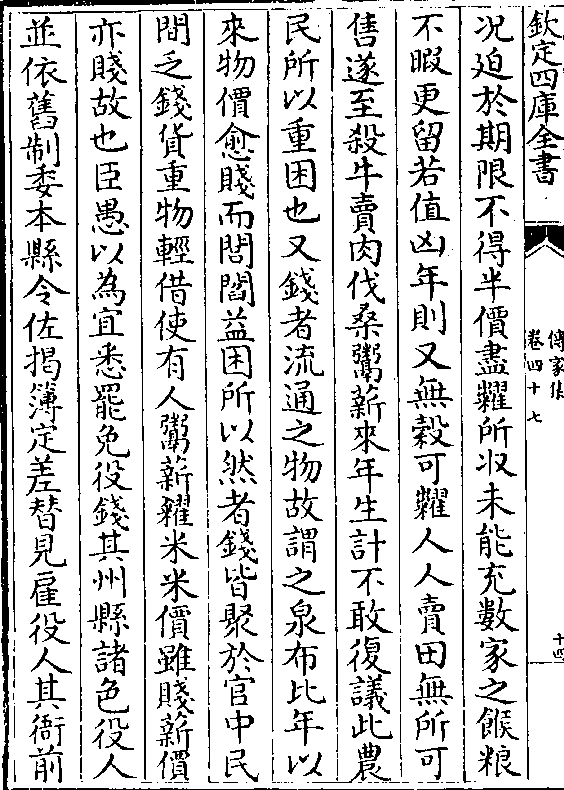 欽定四庫全書
傳家集
卷四十七
十四
况迫於期限不得半價盡糶所收未能充數家之餱粮
不暇更留若值凶年則又無穀可糶人人賣田無所可
售遂至殺牛賣肉伐桑鬻薪來年生計不敢復議此農
民所以重困也又錢者流通之物故謂之泉布比年以
來物價愈賤而閭閻益困所以然者錢皆聚於官中民
間乏錢貨重物輕借使有人鬻薪糴米米價雖賤薪價
亦賤故也臣愚以為宜悉罷免役錢其州縣諸色役人
並依舊制委本縣令佐揭簿定差替見雇役人其衙前